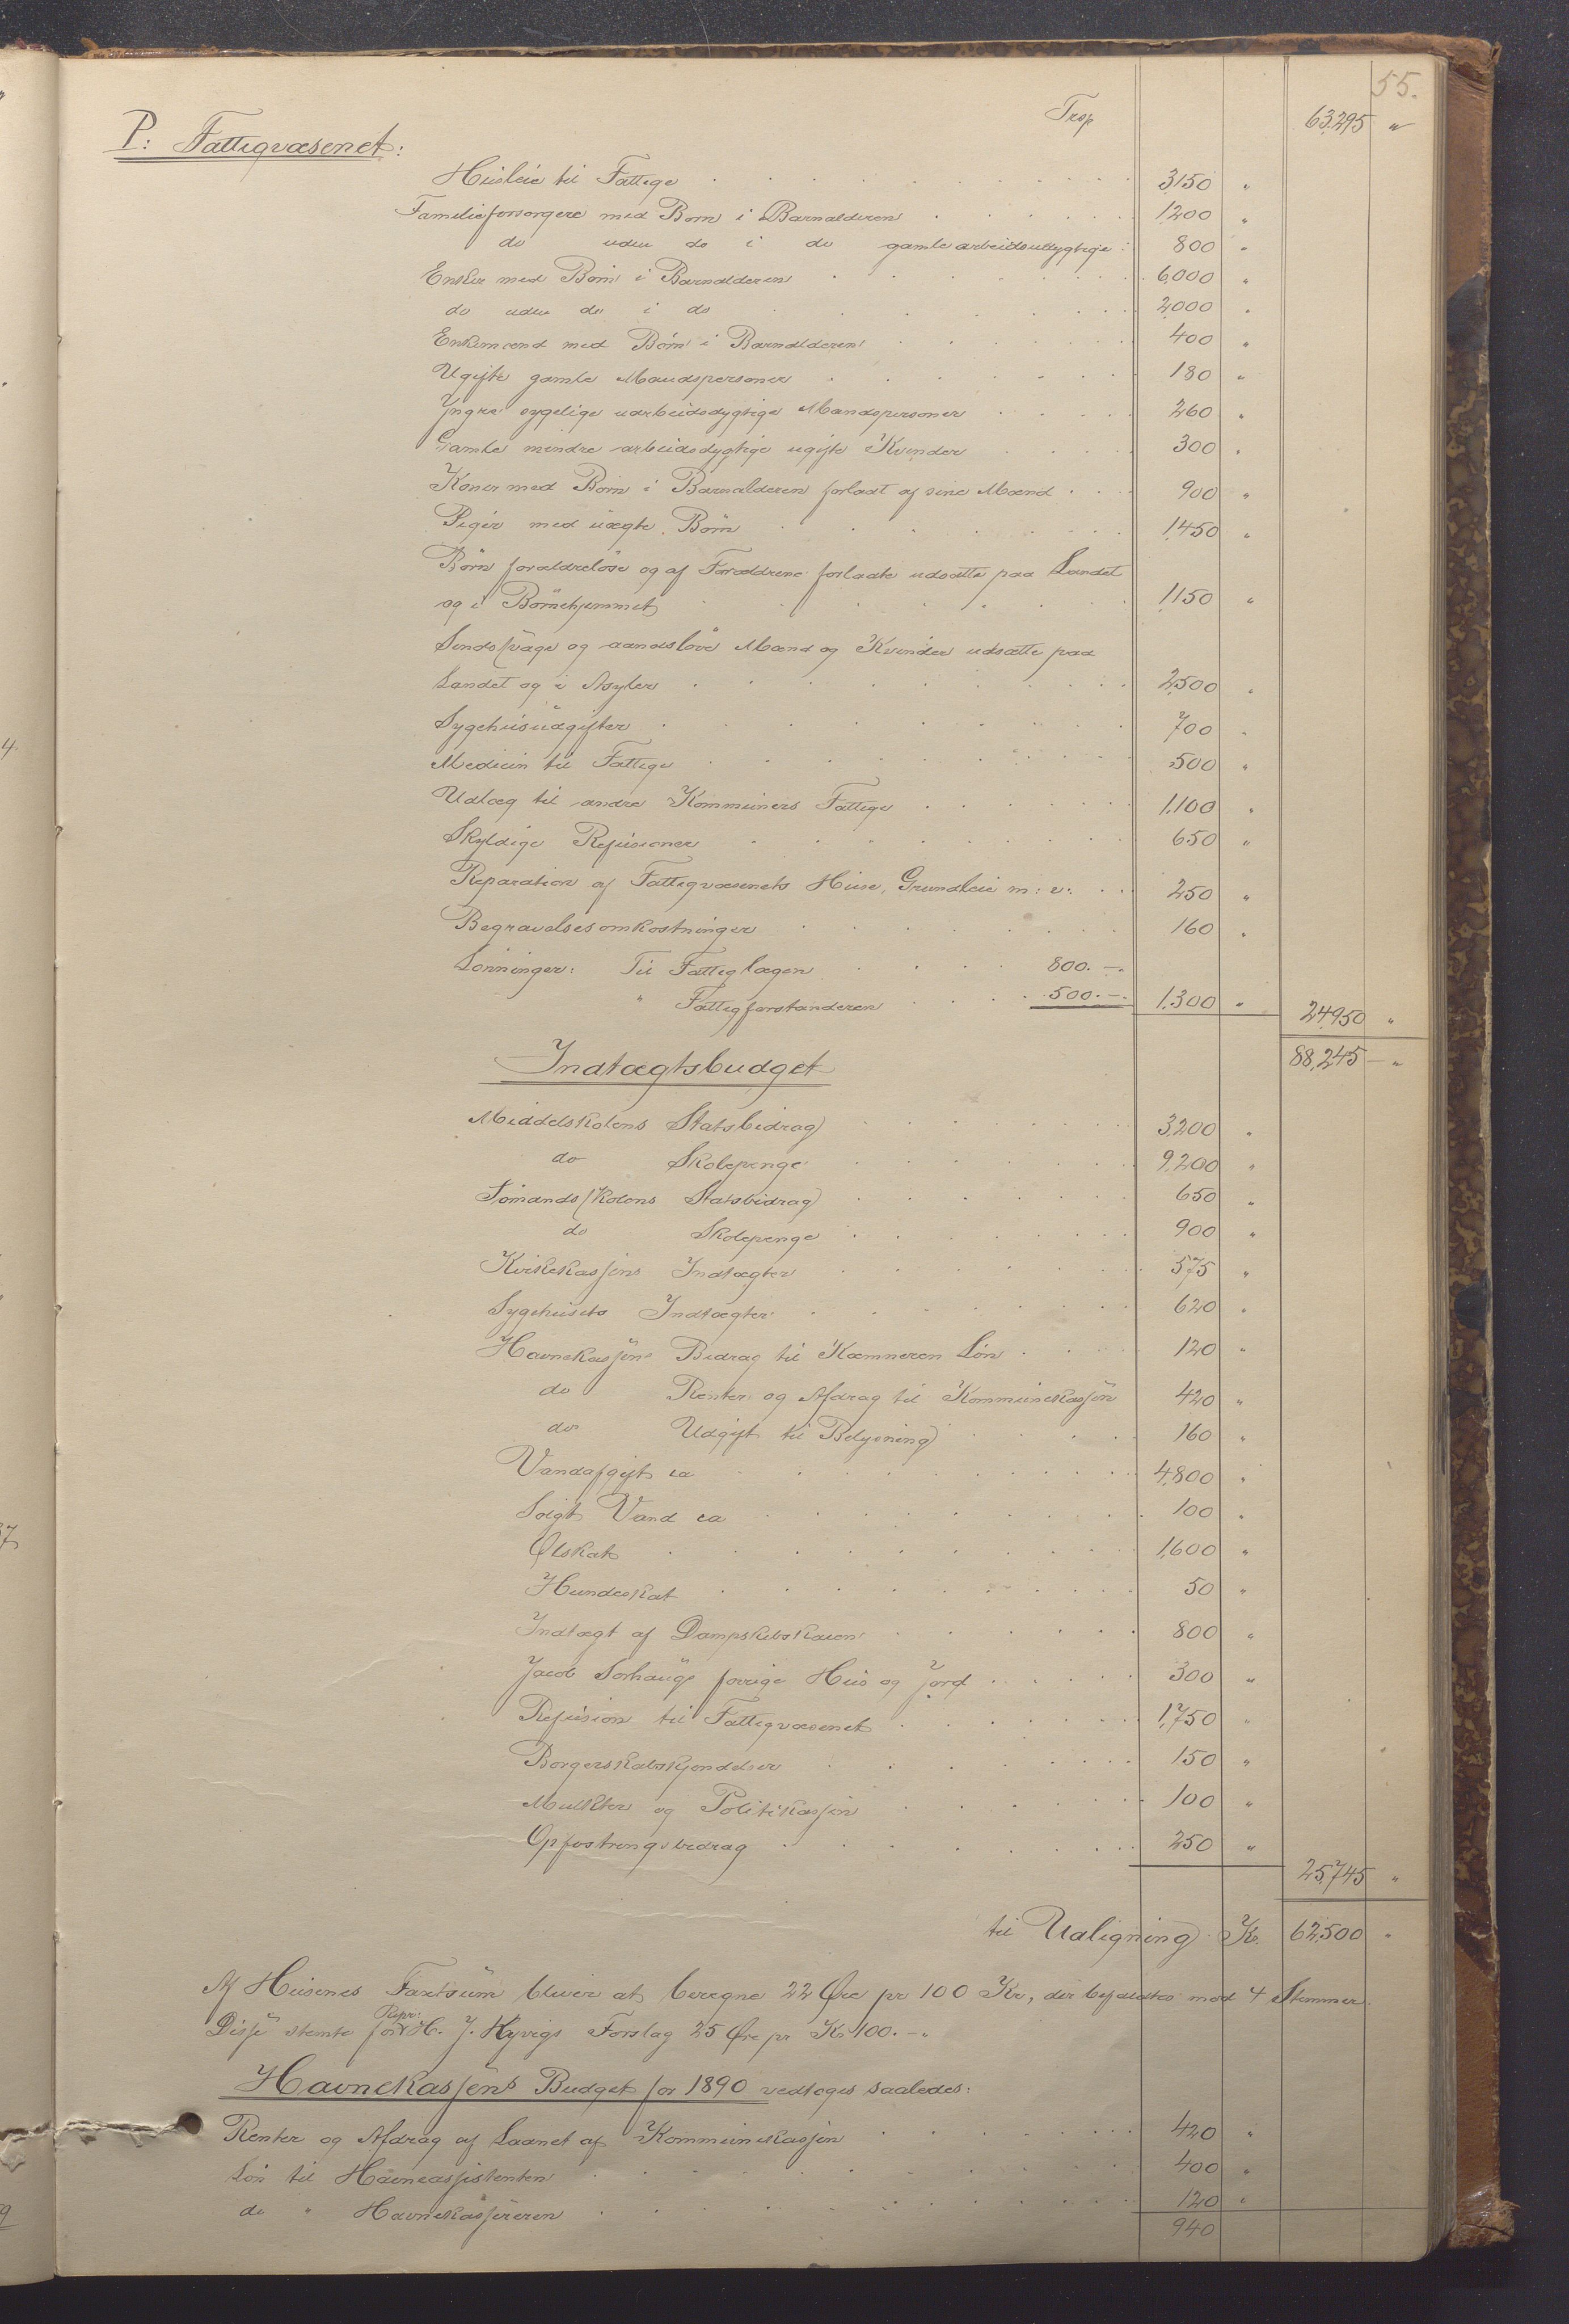 55.
Trsp 63,295 "
P: Fattigvæsenet:
Husleie til Fattige 3150 "
Familieforsørgere med Børn i Barnalderen 1,200 "
do uden do i do gamle arbeidsudygtige 800 "
Enker med Børn i Barnalderen 6,000 "
do uden do i do 2,000 "
Enkemænd med Børn i Barnalderen 400 "
Ugifte gamle Mandspersoner 180 "
Yngre sygelige uarbeidsdygtige Mandspersoner 260 "
Gamle mindre arbeidsdygtige ugifte Kvinder 300 "
Koner med Børn i Barnalderen forladt af sine Mænd 900 "
Piger med uægte Børn 1,450 "
Børn forældreløse og af Forældrene forladte udsatte paa Landet
og i Børnehjemmet 1,150 "
Sindssvage og aandsløve Mænd og Kvinder udsatte paa
Landet og i Asyler 2,500 "
Sygehusudgifter 700 "
Medicin til Fattige 500 "
Udlæg til andre Kommuners Fattige 1,100 "
Skyldige Refusioner 650 "
Reparation af Fattigvæsenets Huse, Grundleie m: v: 250 "
Begravelsesomkostninger 160 "
Lønninger: Til Fattiglægen 800.—
" Fattigforstanderen 500.— 1,300 " 24,950 "
88,245 — "
Indtægtsbudget
Middelskolens Statsbidrag 3,200 "
do Skolepenge 9,200 "
Sømandsskolens Statsbidrag 650 "
do Skolepenge 900 "
Kirkekassens Indtægter 575 "
Sygehusets Indtægter 620 "
Havnekassens Bidrag til Kæmneren Løn 120 "
do Renter og Afdrag til Kommunekassen 420 "
do Udgift til Belysning 160 "
Vandafgift ca 4,800 "
Solgt Vand ca 100 "
Ølskat 1,600 "
Hundeskat 50 "
Indtægt af Dampskibskaien 800 "
Jacob Sørhaugs forrige Hus og Jord 300 "
Refusion til Fattigvæsenet 1,750 "
Borgerskabskjendelser 150 "
Mulkter og Politikassen 100 "
Opfostringsbidrag 250 "
25,745 "
til Udligning Kr. 62,500 "
Af Husenes Taxtsum bliver at beregne 22 Øre pr 100 Kr, der besluttes med 4 Stemmer.
Disse stemte for Repr: H. J. Kyvigs Forslag 25 Øre pr Kr 100.—
Havnekassens Budget for 1890 vedtoges saaledes:
Renter og Afdrag af Laanet af Kommunekassen 420 "
Løn til Havneassistenten 400 "
do " Havnekassereren 120 "
940